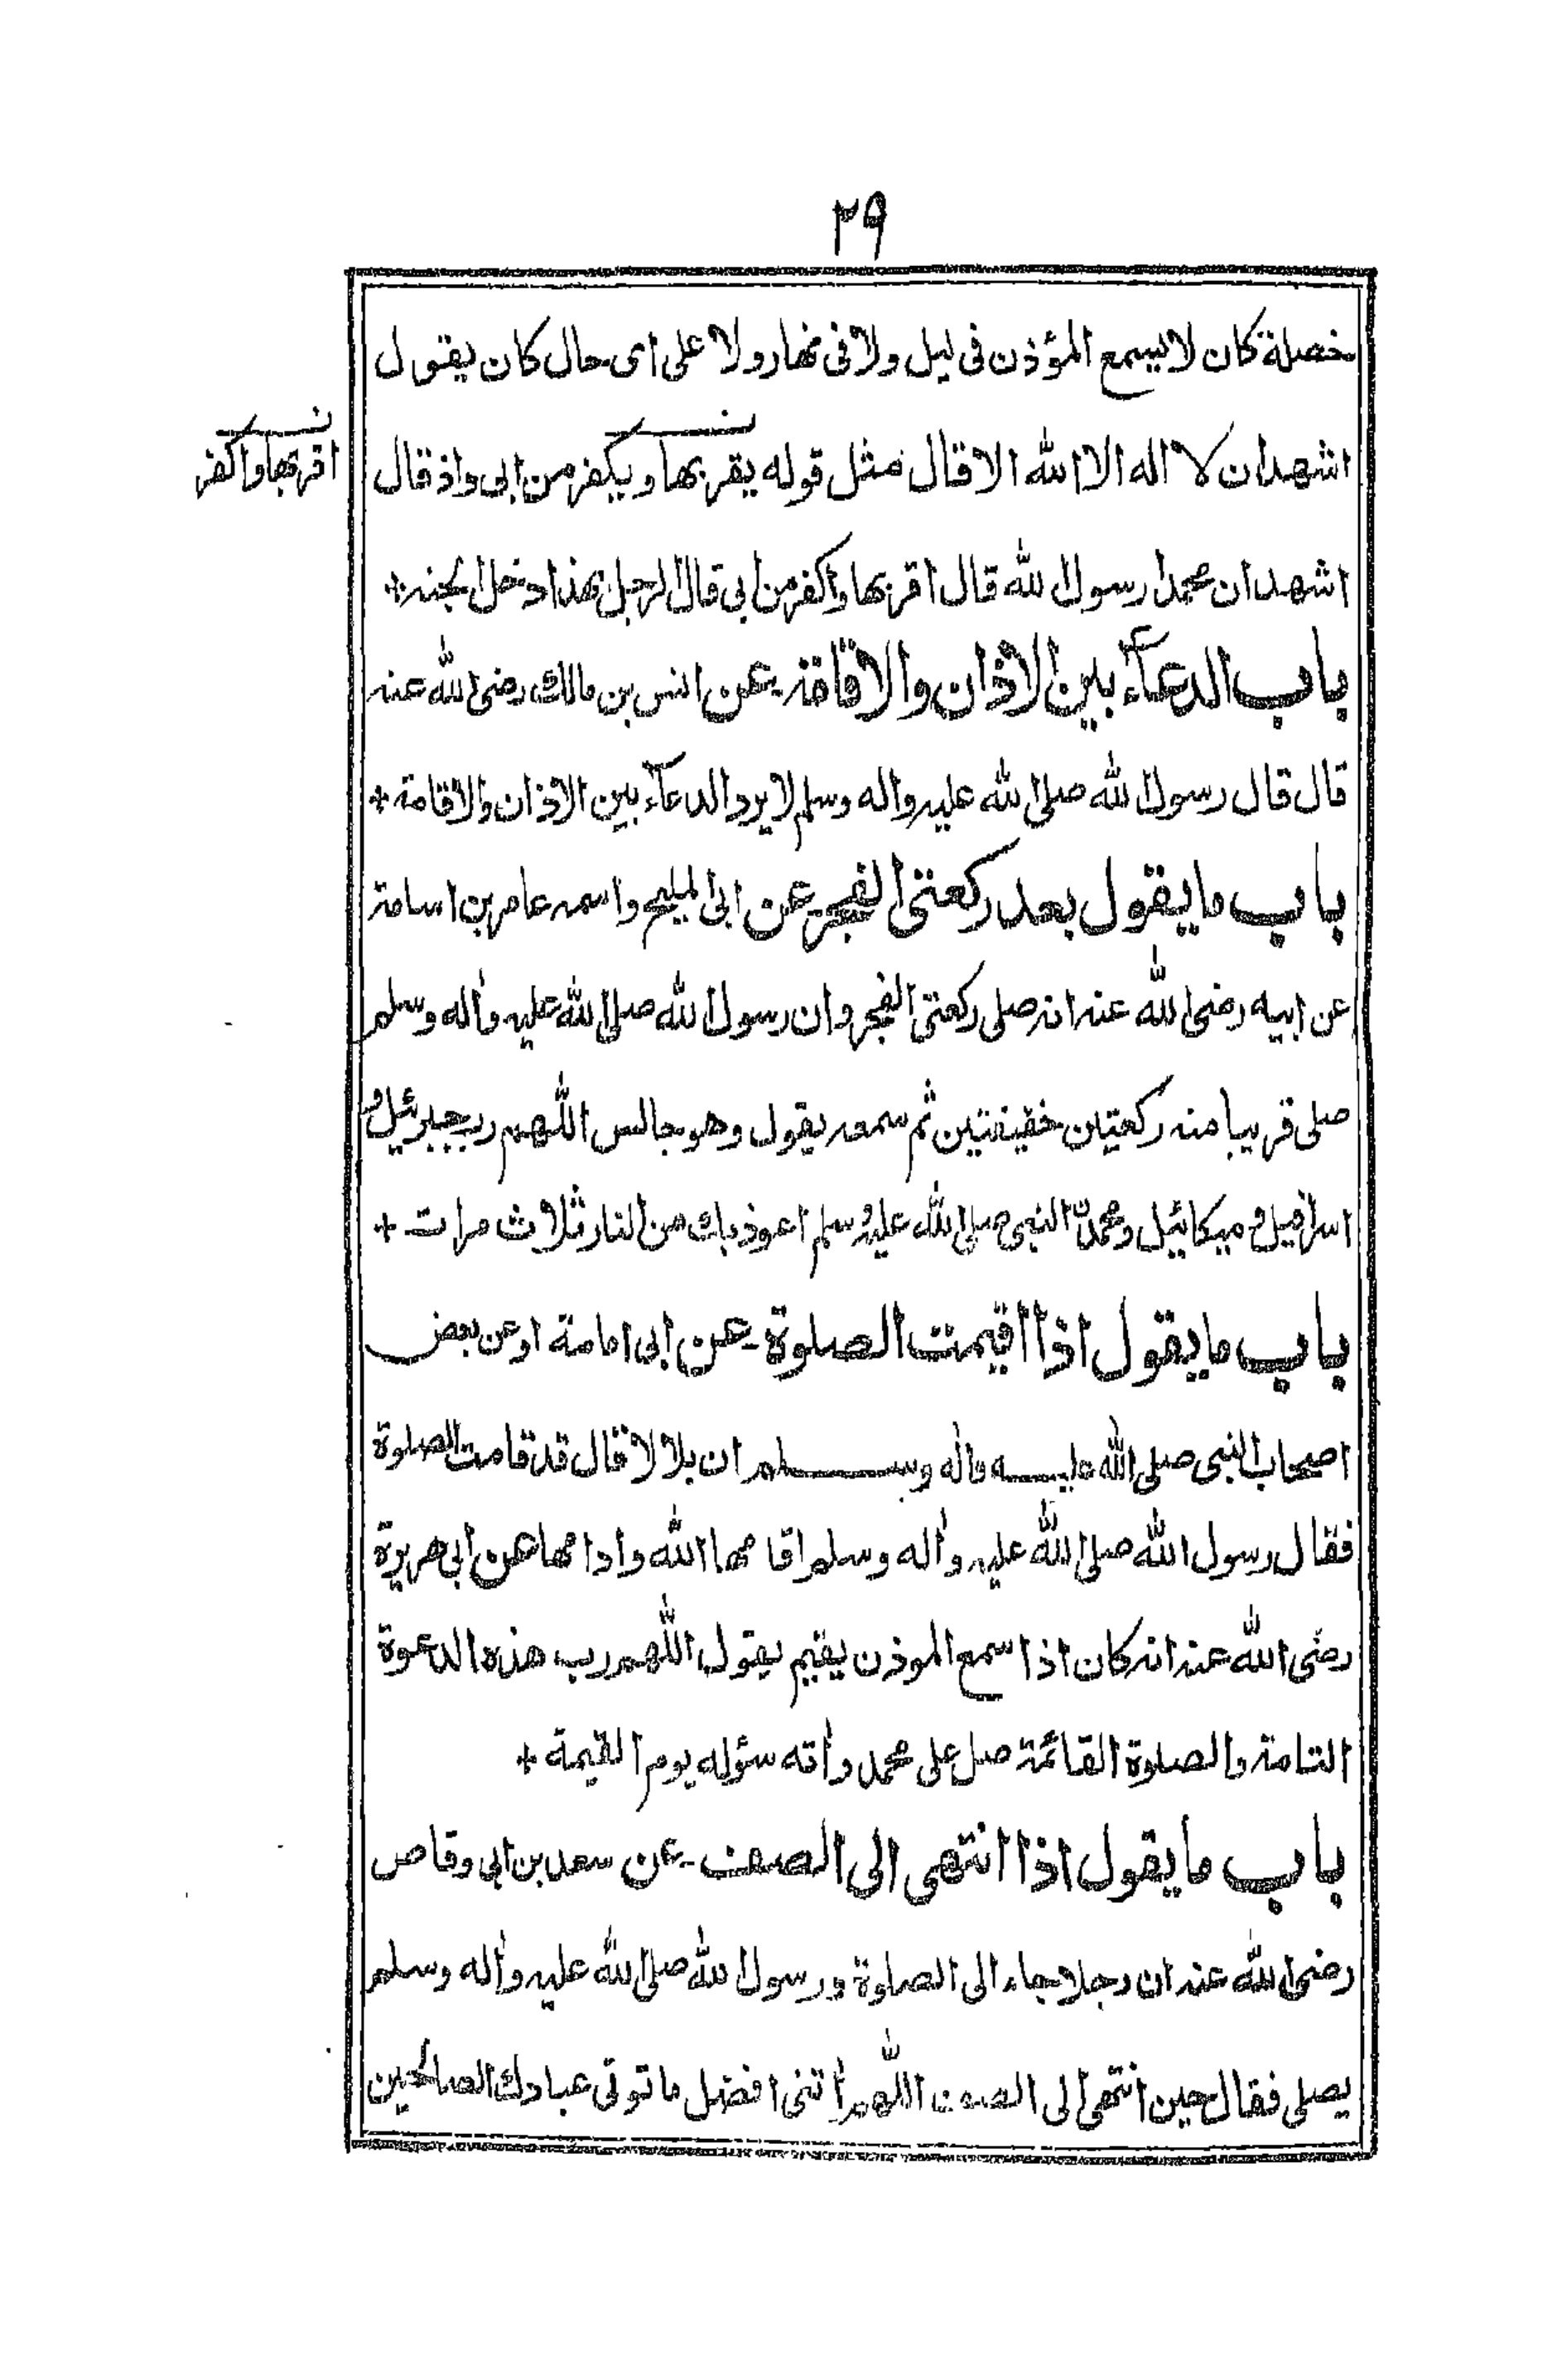 ٢٩
خصلة كان لا يسمع المؤذن فى ليل ولا فى نهار ولا على اى حال كان يقول
اشهد ان لا اله الا الله الا قال مثل قوله يقر بها ويكفر من ابى واذ قال
اقر بها واكفر
اشهد ان محمدا رسول الله قال اقر بها واكفر من ابى قال الرجل بهذا دخل الجنة +
باب الدعآء بين الاذان والاقامة ـ عن انس بن مالك رضى الله عنه
قال قال رسول الله صلى الله عليه واله وسلم لا يرد الدعآء بين الاذان والاقامة +
باب ما يقول بعد ركعتى الفجر ـ عن ابى المليح واسمه عامر بن اسامة
عن ابيه رضى الله عنه انه صلى ركعتى الفجر وان رسول الله صلى الله عليه واله وسلم
صلى قريبا منه ركعتين خفيفتين ثم سمعه يقول وهو جالس اللهم رب جبرئيل و
اسرافيل و ميكائيل ومحمدٍ النبى صلى الله عليه وسلم اعوذ بك من النار ثلاث مرات +
باب ما يقول اذا اقيمت الصلوة ـ عن ابى امامة او عن بعض
اصحاب النبى صلى الله عليه واله وسلم ان بلالا قال قد قامت الصلوة
فقال رسول الله صلى الله عليه واله وسلم اقامها الله وادامها عن ابى هريرة
رضى الله عنه انه كان اذا سمع الموذن يقيم يقول اللهم رب هذه الدعوة
التامة والصلوة القائمة صل على محمد وأته سؤله يوم القيمة +
باب ما يقول اذا انتهى الى الصف ـ عن سعد بن ابى وقاص
رضى الله عنه ان رجلا جاء الى الصلوة ورسول الله صلى الله عليه واله وسلم
يصلى فقال حين انتهى الى الصف اللهم أتنى افضل ما توتى عبادك الصالحين